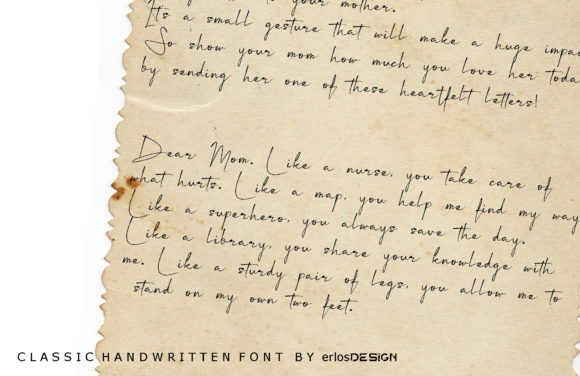 your mother.
It's a small gesture that will make a huge
So show your mom how much you love her
by sending her one of these heartfelt letters!
Dear Mom. Like a nurse, you take care of
what hurts. Like a map, you help me find my way
Like a superhero, you always save the day.
Like a library, you share your knowledge with
me. Like a sturdy pair of legs, you allow me to
stand on my own two feet.
CLASSIC HANDWRITTEN FONT BY erlosDESIGN